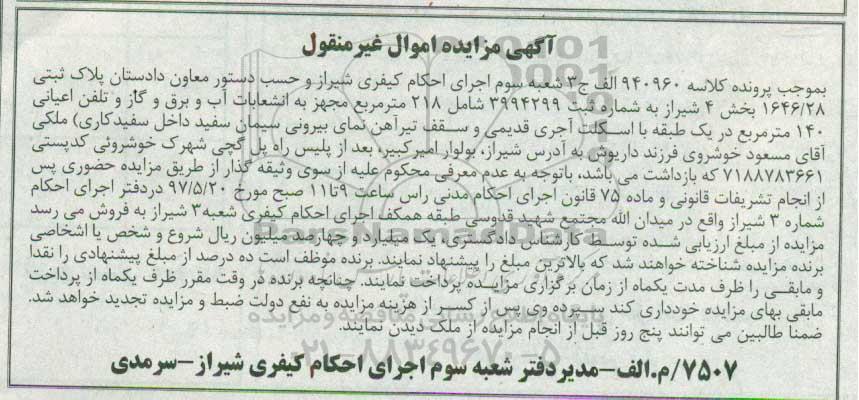 آگهی مزایده اموال غیرمنقول
بموجب پرونده کلاسه ۹۴۰۹۶۰ الف ج۳ شعبه سوم اجرای احکام کیفری شیراز و حسب دستور معاون دادستان پلاک ثبتی
۱۶۴۶/۲۸ بخش ۴ شیراز به شماره ثبت ۳۹۹۴۲۹۹ شامل ۲۱۸ مترمربع مجهز به انشعابات آب و برق و گاز و تلفن اعیانی
۱۴۰ مترمربع در یک طبقه با اسکلت آجری قدیمی و سقف تیرآهن نمای بیرونی سیمان سفید داخل سفیدکاری) ملکی
آقای مسعود خوشروی فرزند داریوش به آدرس شیراز، بولوار امیرکبیر، بعد از پلیس راه پل گچی شهرک خوشروئی کدپستی
۷۱۸۸۷۸۳۶۶۱ که بازداشت می باشد، باتوجه به عدم معرفی محکوم علیه از سوی وثیقه گذار از طریق مزایده حضوری پس
از انجام تشریفات قانونی و ماده ۷۵ قانون اجرای احکام مدنی راس ساعت ۹تا۱۱ صبح مورخ ۹۷/۵/۲۰ دردفتر اجرای احکام
شماره ۳ شیراز واقع در میدان الله مجتمع شهید قدوسی طبقه همکف اجرای احکام کیفری شعبه۳ شیراز به فروش می رسد
مزایده از مبلغ ارزیابی شده توسط کارشناس دادگستری، یک میلیارد و چهارصد میلیون ریال شروع و شخص یا اشخاصی
برنده مزایده شناخته خواهند شد که بالاترین مبلغ را پیشنهاد نمایند. برنده موظف است ده درصد از مبلغ پیشنهادی را نقدا
و مابقی را ظرف مدت یکماه از زمان برگزاری مزایده پرداخت نمایند. چنانچه برنده در وقت مقرر ظرف یکماه از پرداخت
مابقی بهای مزایده خودداری کند سپرده وی پس از کسر از هزینه مزایده به نفع دولت ضبط و مزایده تجدید خواهد شد.
ضمنا طالبین می توانند پنج روز قبل از انجام مزایده از ملک دیدن نمایند.
۷۵۰۷/م.الف-مدیردفتر شعبه سوم اجرای احکام کیفری شیراز-سرمدی